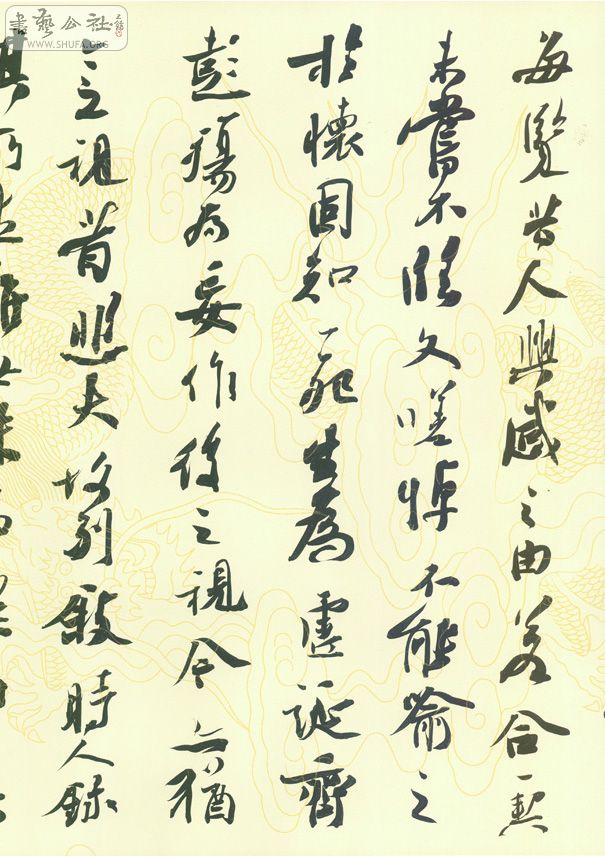 每覽昔人興感之由若合一契
未嘗不臨文嗟悼不能喻之
於懷固知一死生為虛誕齊
彭殤為妄作後之視今亦猶
之視昔悲夫故列敘時人錄
書藝公社
WWW.SHUFA.ORG